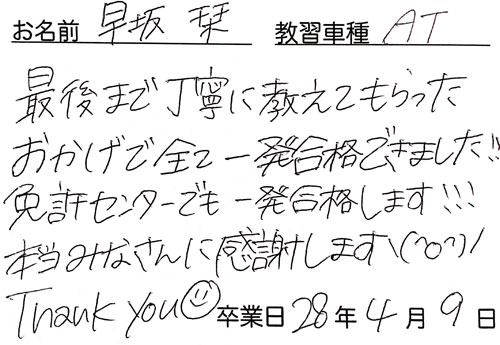 お名前 早坂 栞 教習車種 AT
最後まで丁寧に教えてもらった
おかげで全て一発合格できました!!
免許センターでも一発合格します!!!
本当みなさんに感謝します\(^o^)/
Thank you☺ 卒業日 28年4月9日